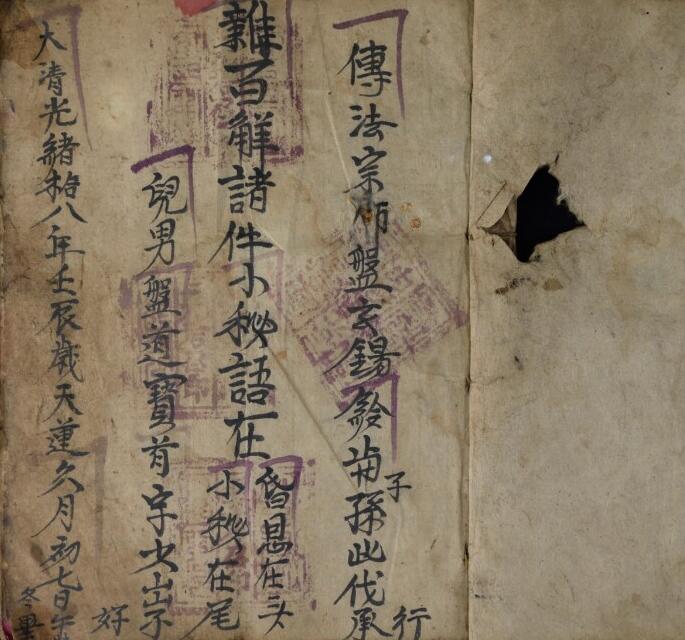 傳法宗師盤玄錫給與子孫此代承行
雜百解諸件小秘語在
昏思在头
小秘在尾
兒男盤道寳
字少出不好
大清光緒拾八年壬辰歲天運久月初七日